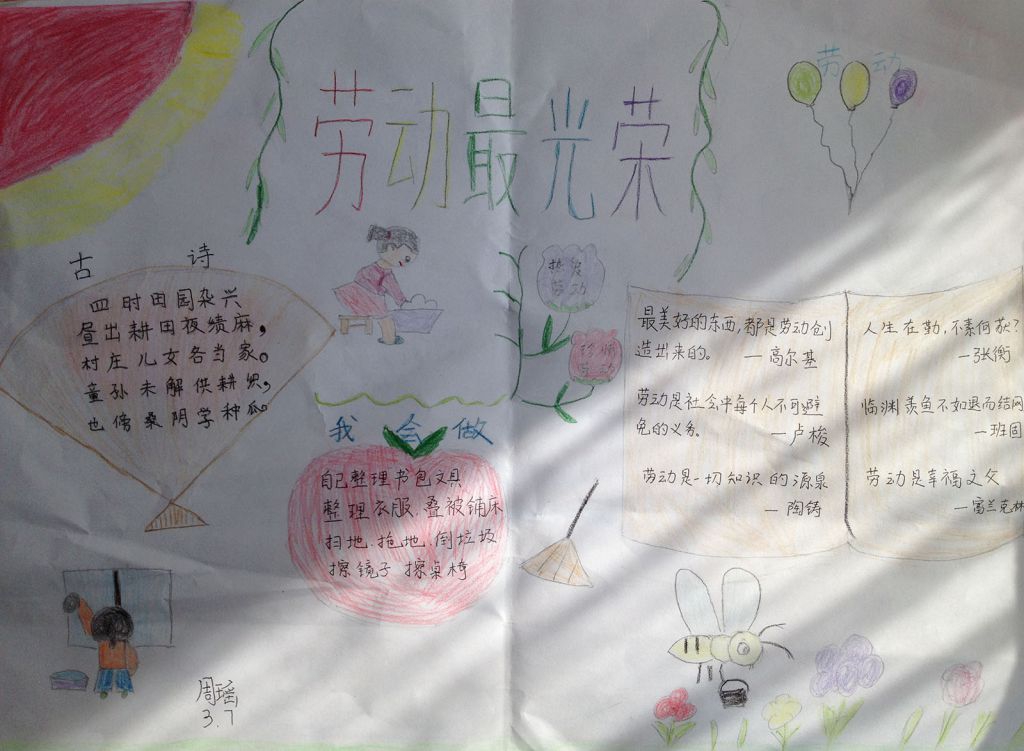 劳动最光荣
劳动
古诗
四时田园杂兴
昼出耕田夜绩麻,
村庄儿女各当家。
童孙未解供耕织,
也傍桑阴学种瓜。
热爱
劳动
珍惜
我会做
自己整理书包文具
整理衣服.叠被铺床
扫地.拖地.倒垃圾
擦镜子 擦桌椅
最美好的东西,都是劳动创
造出来的。
—高尔基
劳动是社会中每个人不可避
免的义务。
—卢梭
劳动是一切知识的源泉
—陶铸
人生在勤,不索何获?
—张衡
临渊羡鱼不如退而结网
—班固
劳动是幸福之父
—富兰克林
周瑶
3.7